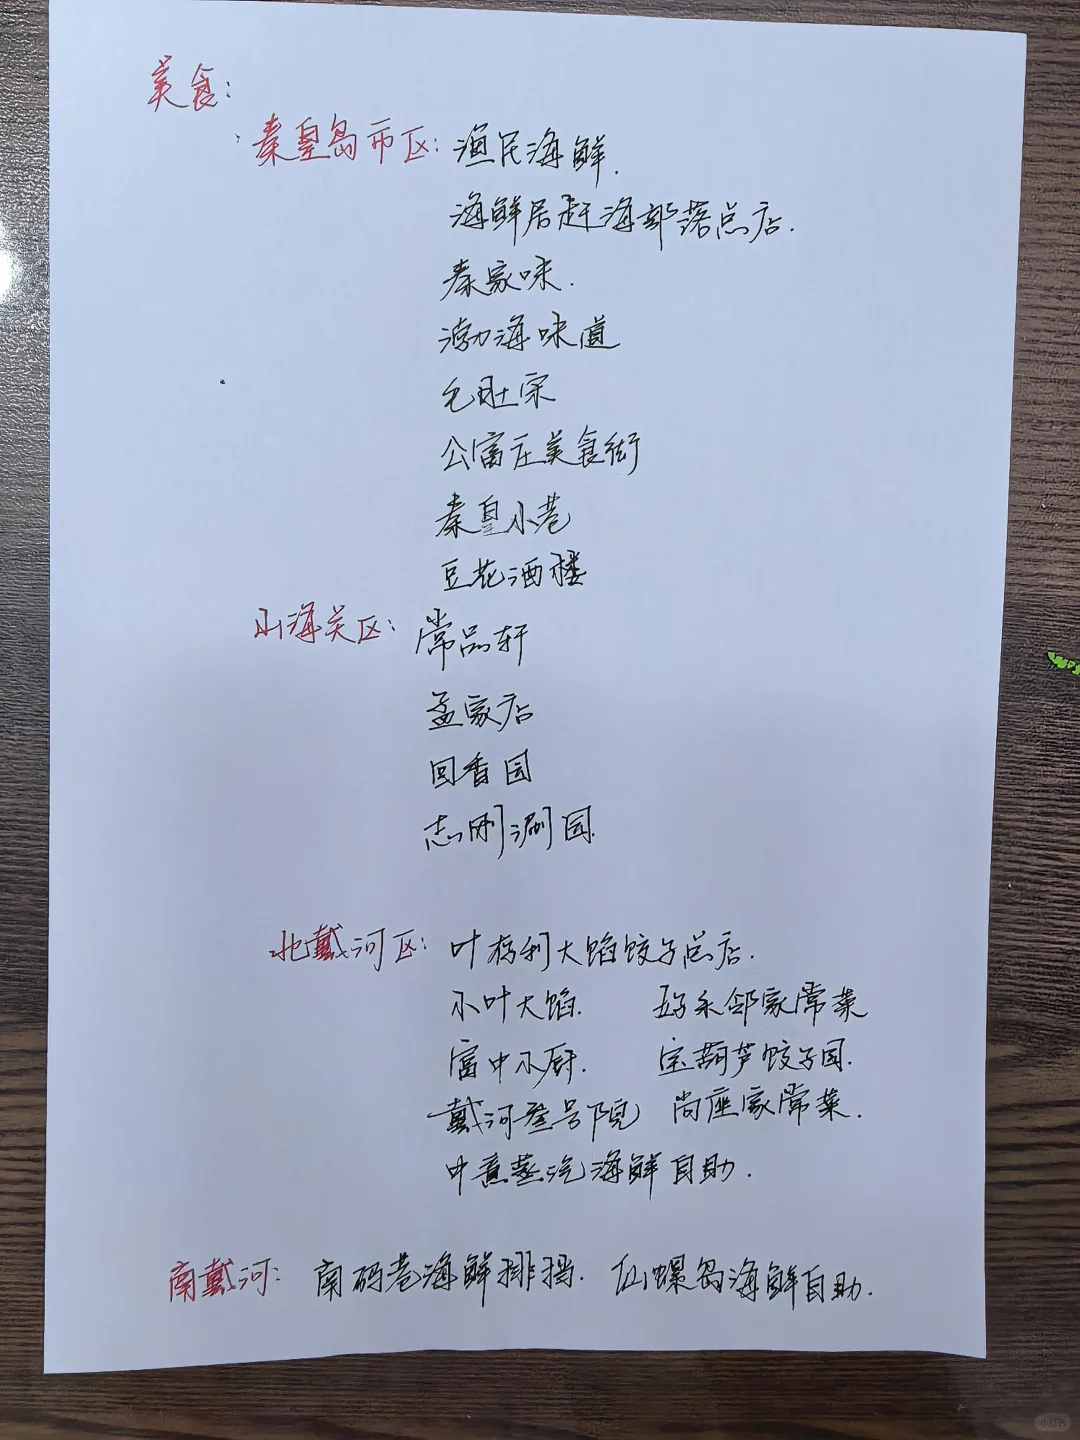 美食:
秦皇岛市区: 渔民海鲜.
海鲜居赶海部落总店.
秦家味.
渤海味道
毛肚宗
公富庄美食街
秦皇小巷
豆花酒楼
山海关区: 常品轩
孟家店
回香园
志刚涮园.
北戴河区: 叶存利大馅饺子总店.
小叶大馅. 永邻家常菜
富中小厨. 宝葫芦饺子园.
戴河壹号院 尚座家常菜.
叶意蒸汽海鲜自助.
南戴河: 南码巷海鲜排挡. 仙螺岛海鲜自助.
小红书